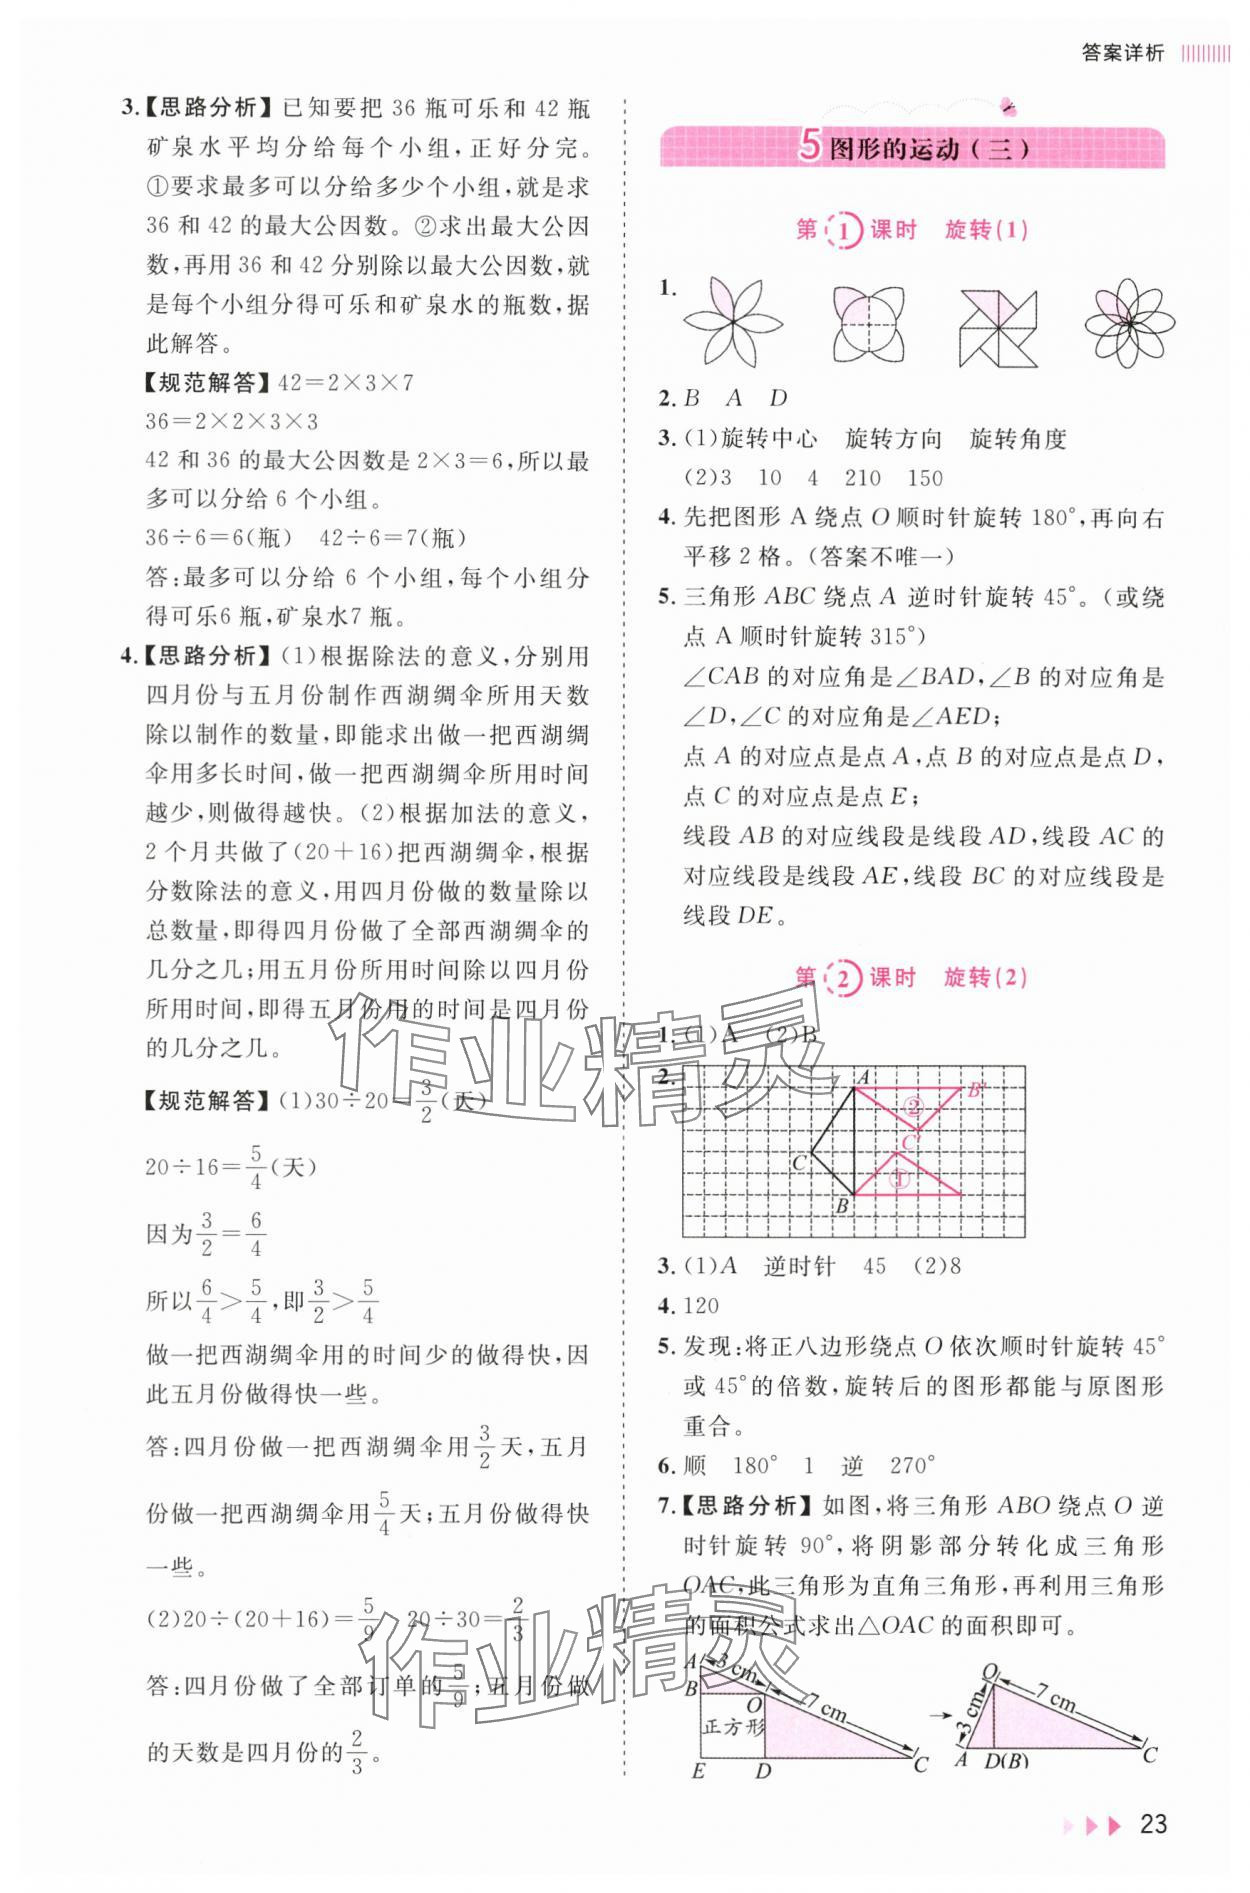 答案详析
3.【思路分析】已知要把 36 瓶可乐和 42 瓶
矿泉水平均分给每个小组,正好分完。
①要求最多可以分给多少个小组,就是求
36 和 42 的最大公因数。②求出最大公因
数,再用 36 和 42 分别除以最大公因数,就
是每个小组分得可乐和矿泉水的瓶数,据
此解答。
【规范解答】42=2×3×7
36=2×2×3×3
42 和 36 的最大公因数是 2×3=6,所以最
多可以分给 6 个小组。
36÷6=6(瓶) 42÷6=7(瓶)
答:最多可以分给 6 个小组,每个小组分
得可乐6 瓶,矿泉水7 瓶。
4.【思路分析】(1)根据除法的意义,分别用
四月份与五月份制作西湖绸伞所用天数
除以制作的数量,即能求出做一把西湖绸
伞用多长时间,做一把西湖绸伞所用时间
越少,则做得越快。(2)根据加法的意义,
2 个月共做了(20+16)把西湖绸伞,根据
分数除法的意义,用四月份做的数量除以
总数量,即得四月份做了全部西湖绸伞的
几分之几;用五月份所用时间除以四月份
所用时间,即得五月份用的时间是四月份
的几分之几。
【规范解答】(1)30÷20=3/2(天)
20÷16=5/4(天)
因为3/2=6/4
所以6/4>5/4,即3/2>5/4
做一把西湖绸伞用的时间少的做得快,因
此五月份做得快一些。
答:四月份做一把西湖绸伞用3/2天,五月
份做一把西湖绸伞用5/4天;五月份做得快
一些。
(2)20÷(20+16)=5/9 20÷30=2/3
答:四月份做了全部订单的5/9;五月份做
的天数是四月份的2/3。
5 图形的运动(三)
第1课时 旋转(1)
1.
2. B A D
3. (1)旋转中心 旋转方向 旋转角度
(2)3 10 4 210 150
4. 先把图形 A 绕点 O 顺时针旋转 180°,再向右
平移 2 格。(答案不唯一)
5. 三角形 ABC 绕点 A 逆时针旋转 45°。(或绕
点 A 顺时针旋转 315°)
∠CAB 的对应角是∠BAD,∠B 的对应角是
∠D,∠C 的对应角是∠AED;
点 A 的对应点是点 A,点 B 的对应点是点 D,
点 C 的对应点是点 E;
线段 AB 的对应线段是线段 AD,线段 AC 的
对应线段是线段 AE,线段 BC 的对应线段是
线段 DE。
第2课时 旋转(2)
1. (1)A (2)B
2.
A B′
② C′
C
①
B
3. (1)A 逆时针 45 (2)8
4. 120
5. 发现:将正八边形绕点 O 依次顺时针旋转 45°
或 45°的倍数,旋转后的图形都能与原图形
重合。
6. 顺 180° 1 逆 270°
7.【思路分析】如图,将三角形 ABO 绕点 O 逆
时针旋转 90°,将阴影部分转化成三角形
OAC,此三角形为直角三角形,再利用三角形
的面积公式求出△OAC 的面积即可。
A 3 cm
B O 7 cm
正方形
E D C
O 7 cm
3 cm
A D(B) C
作业精灵
作业精灵
23